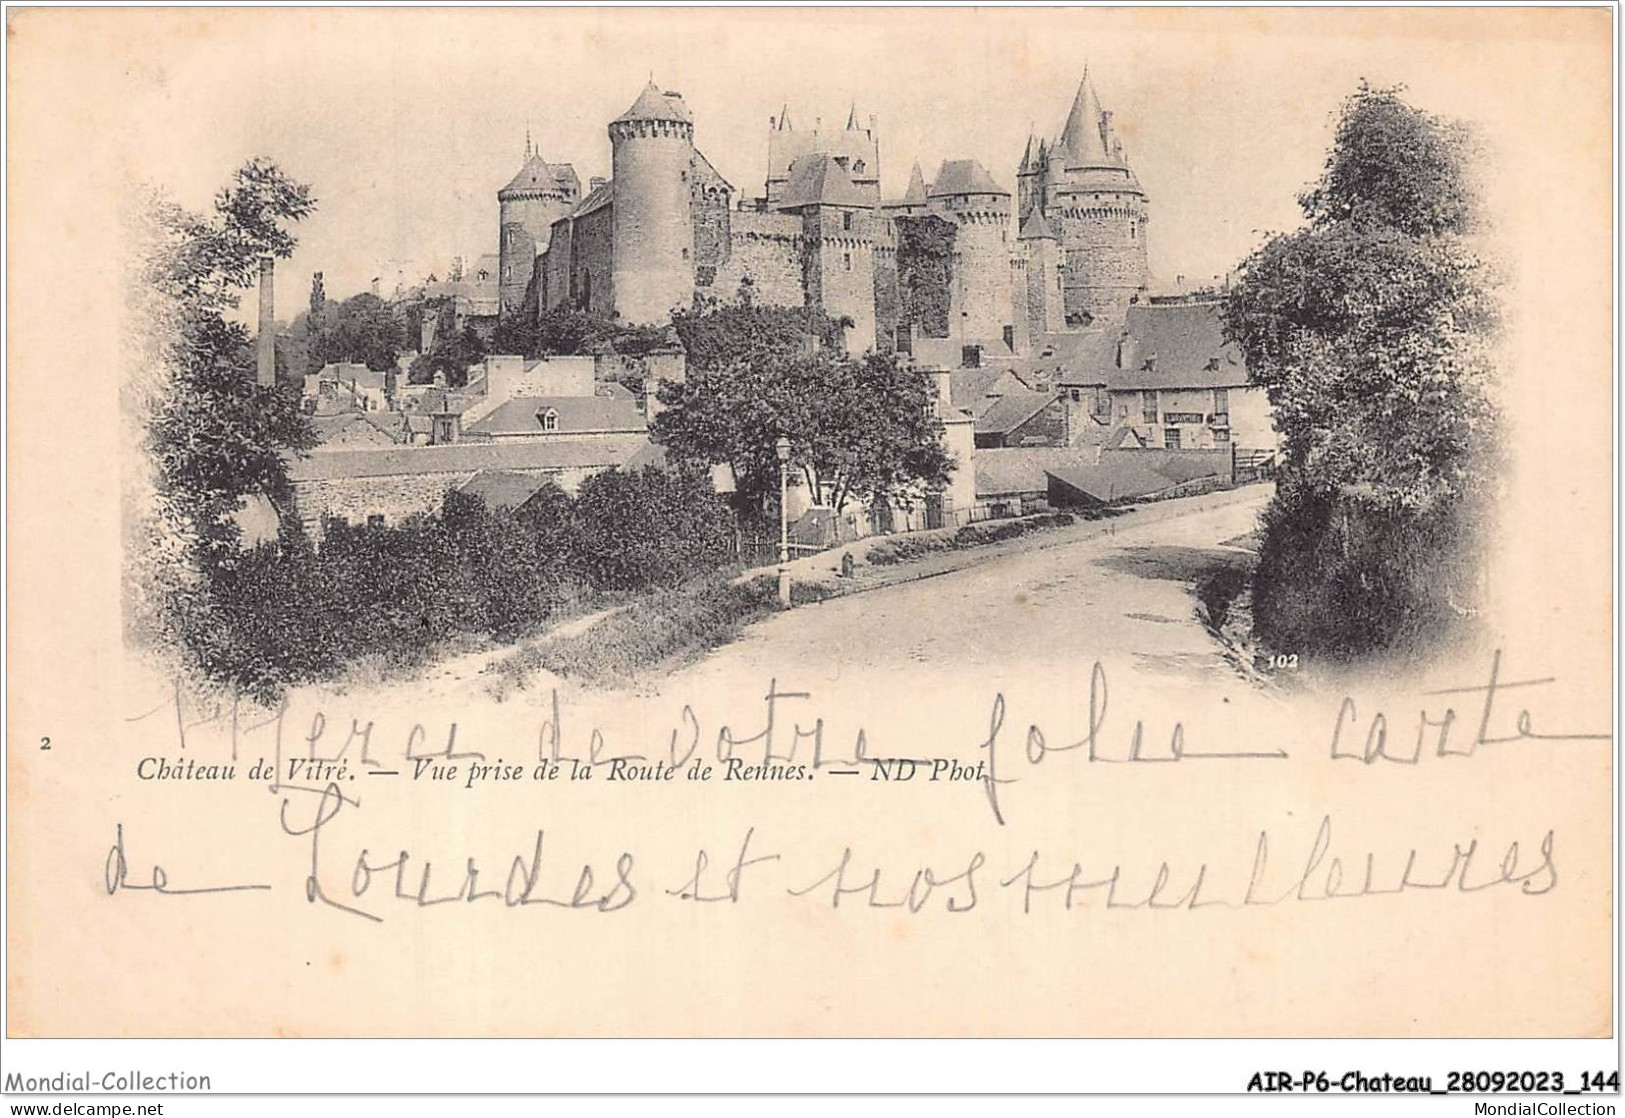 102
Merci de votre jolie carte
2
Château de Vitré. — Vue prise de la Route de Rennes. — ND Phot
de Lourdes et nos meilleures
Mondial-Collection
AIR-P6-Chateau_28092023_144
delcampe.net
MondialCollection